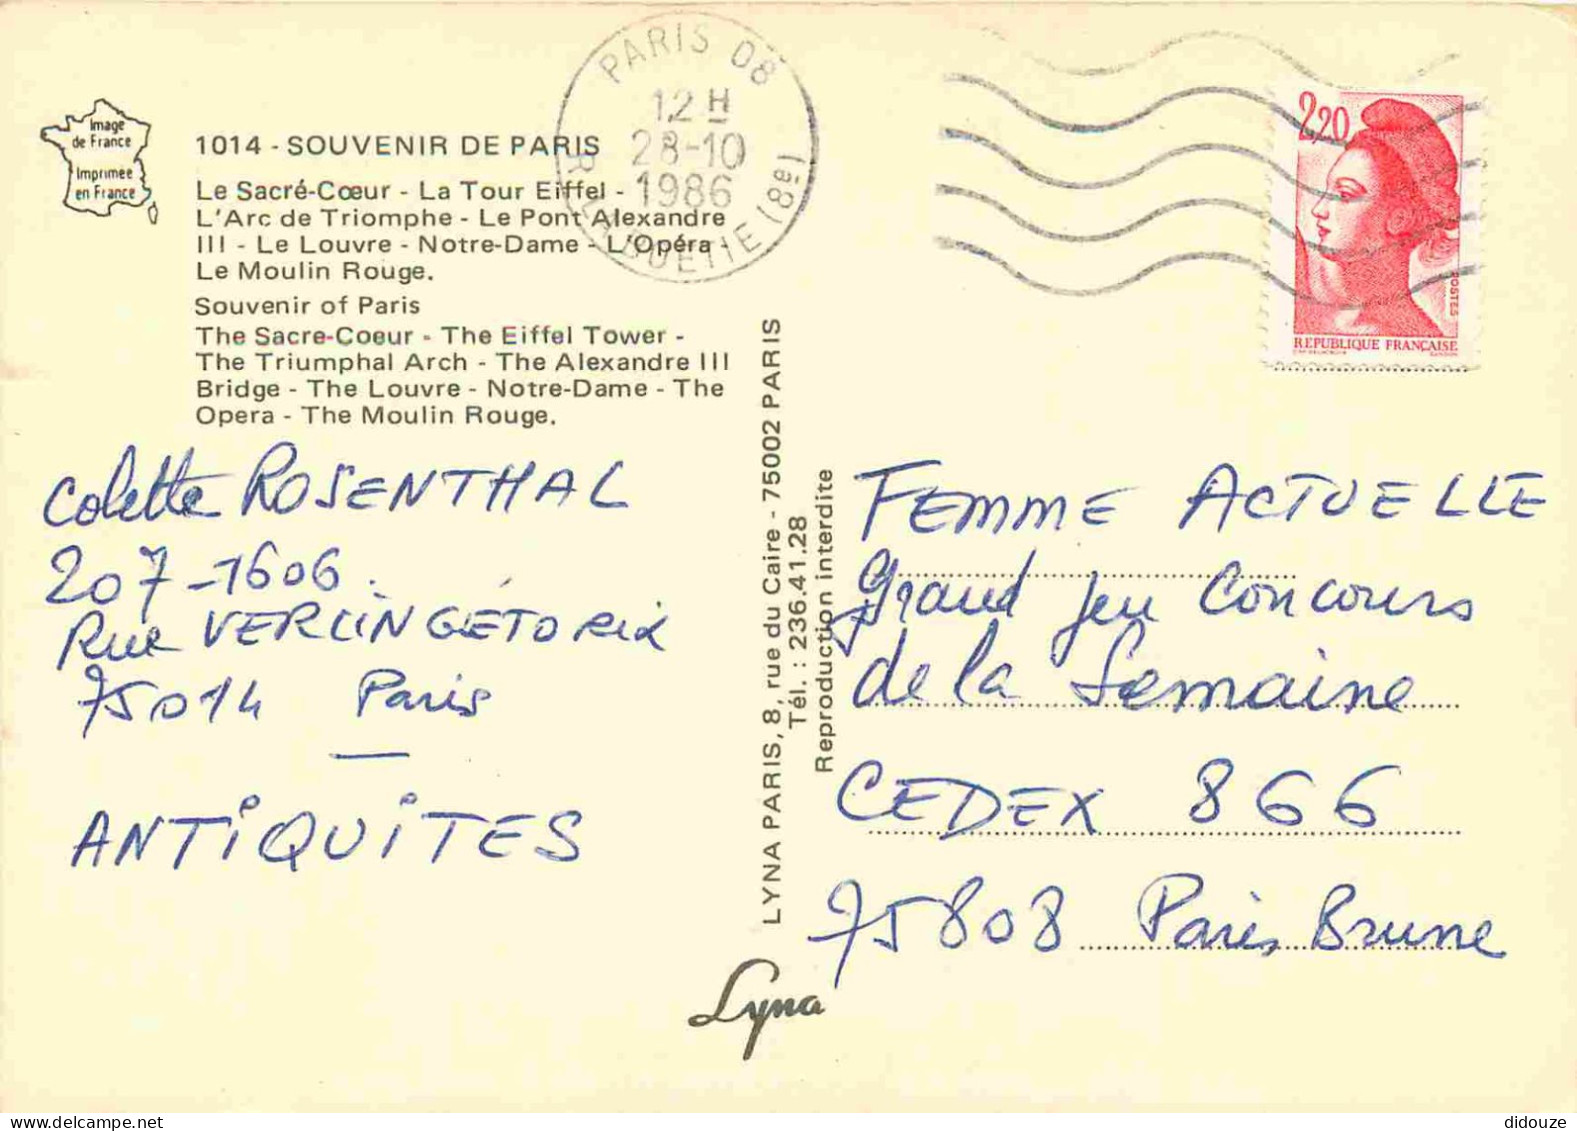 PARIS 08
12 H
28-10
1986
R. LA BOETIE (8e)
2,20
POSTES
REPUBLIQUE FRANÇAISE
Image
de France
Imprimée
en France
1014 - SOUVENIR DE PARIS
Le Sacré-Cœur - La Tour Eiffel -
L'Arc de Triomphe - Le Pont Alexandre
III - Le Louvre - Notre-Dame - L'Opéra -
Le Moulin Rouge.
Souvenir of Paris
The Sacre-Coeur - The Eiffel Tower -
The Triumphal Arch - The Alexandre III
Bridge - The Louvre - Notre-Dame - The
Opera - The Moulin Rouge.
Colette ROSENTHAL
207-1606
Rue VERCINGÉTORIX
75014 Paris
ANTIQUITES
LYNA PARIS, 8, rue du Caire - 75002 PARIS
Tél. : 236.41.28
Reproduction interdite
Lyna
FEMME ACTUELLE
Grand jeu Concours
de la Semaine
CEDEX 866
75808 Paris Brune
didouze